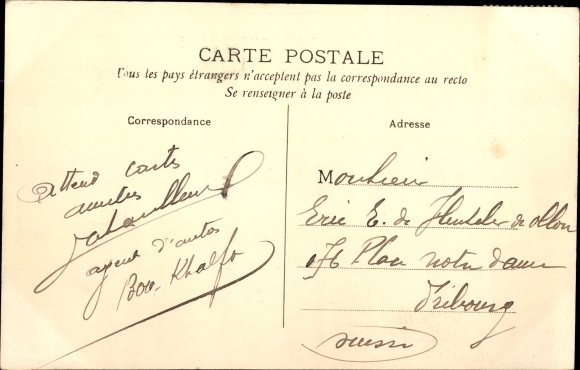 CARTE POSTALE
Tous les pays étrangers n'acceptent pas la correspondance au recto
Se renseigner à la poste
Correspondance
Attend cartes
agent d'autos
Bou-Khalfa
Adresse
Monsieur
Eric E. de
176 Place notre dame
Fribourg
Suisse